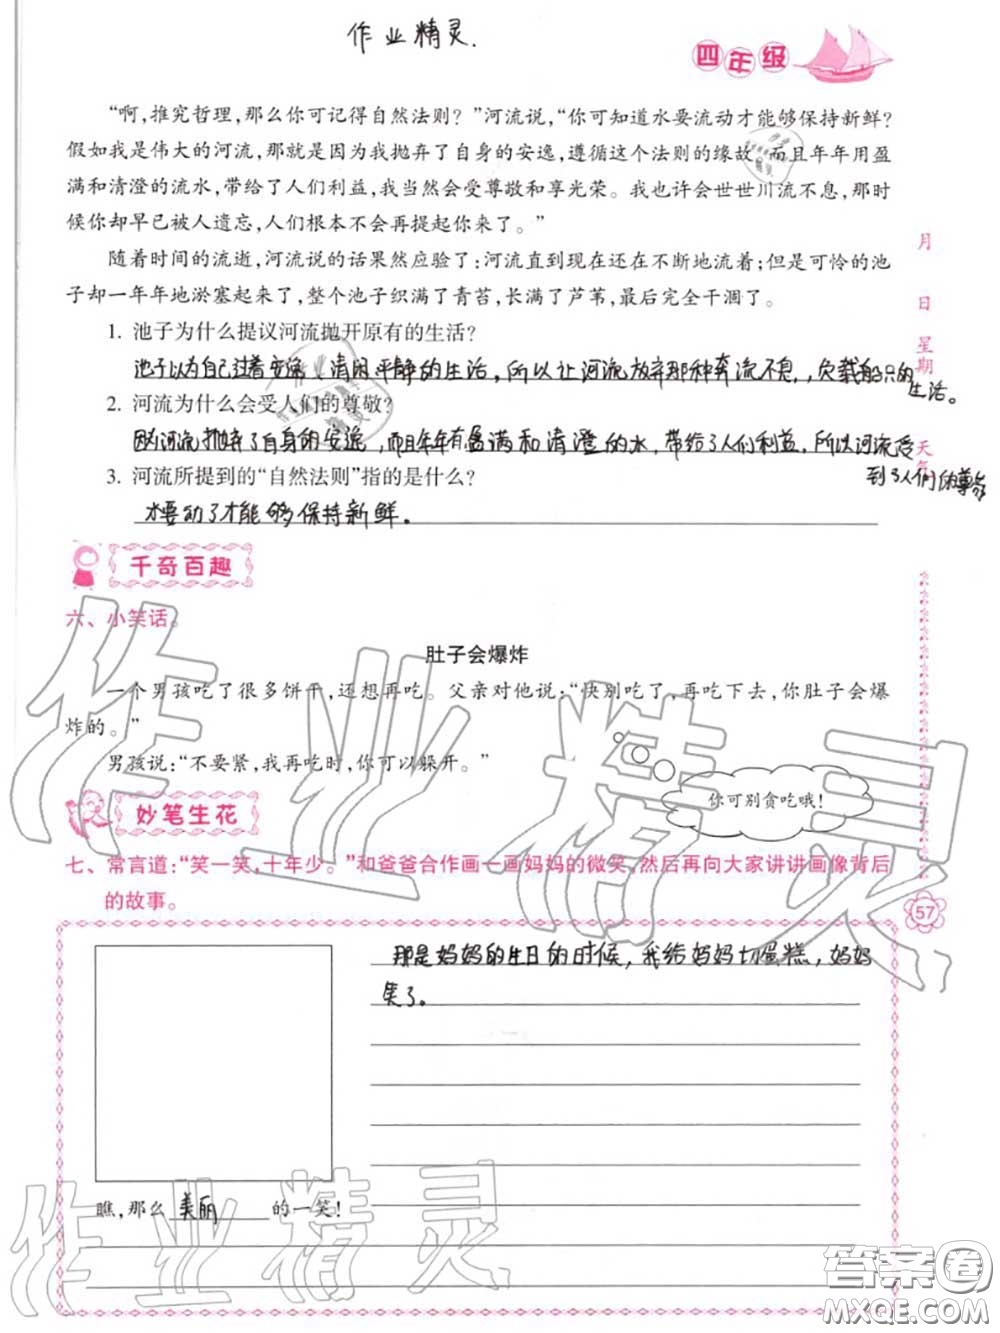 作业精灵.
四年级
“啊,推究哲理,那么你可记得自然法则？”河流说,“你可知道水要流动才能够保持新鲜？
假如我是伟大的河流,那就是因为我抛弃了自身的安逸,遵循这个法则的缘故,而且年年用盈
满和清澄的流水,带给了人们利益,我当然会受尊敬和享光荣。我也许会世世川流不息,那时
候你却早已被人遗忘,人们根本不会再提起你来了。”
随着时间的流逝,河流说的话果然应验了:河流直到现在还在不断地流着;但是可怜的池
子却一年年地淤塞起来了,整个池子织满了青苔,长满了芦苇,最后完全干涸了。
1. 池子为什么提议河流抛开原有的生活？
池子以为自己过着安逸、清闲平静的生活，所以让河流放弃那种奔流不息，负载船只的
生活。
2. 河流为什么会受人们的尊敬？
因为河流抛弃了自身的安逸，而且年年有盈满和清澄的水，带给了人们利益，所以河流受
到了人们的尊敬
3. 河流所提到的“自然法则”指的是什么？
水要动了才能够保持新鲜。
月
日
星期
天气
千奇百趣
六、小笑话。
肚子会爆炸
一个男孩吃了很多饼干,还想再吃。父亲对他说:“快别吃了,再吃下去,你肚子会爆
炸的。”
男孩说:“不要紧,我再吃时,你可以躲开。”
你可别贪吃哦!
妙笔生花
七、常言道:“笑一笑,十年少。”和爸爸合作画一画妈妈的微笑,然后再向大家讲讲画像背后
的故事。
57
那是妈妈的生日的时候，我给妈妈切蛋糕，妈妈
笑了。
瞧,那么 美丽 的一笑!
作业精灵
作业精灵
答案圈
MXQE.COM